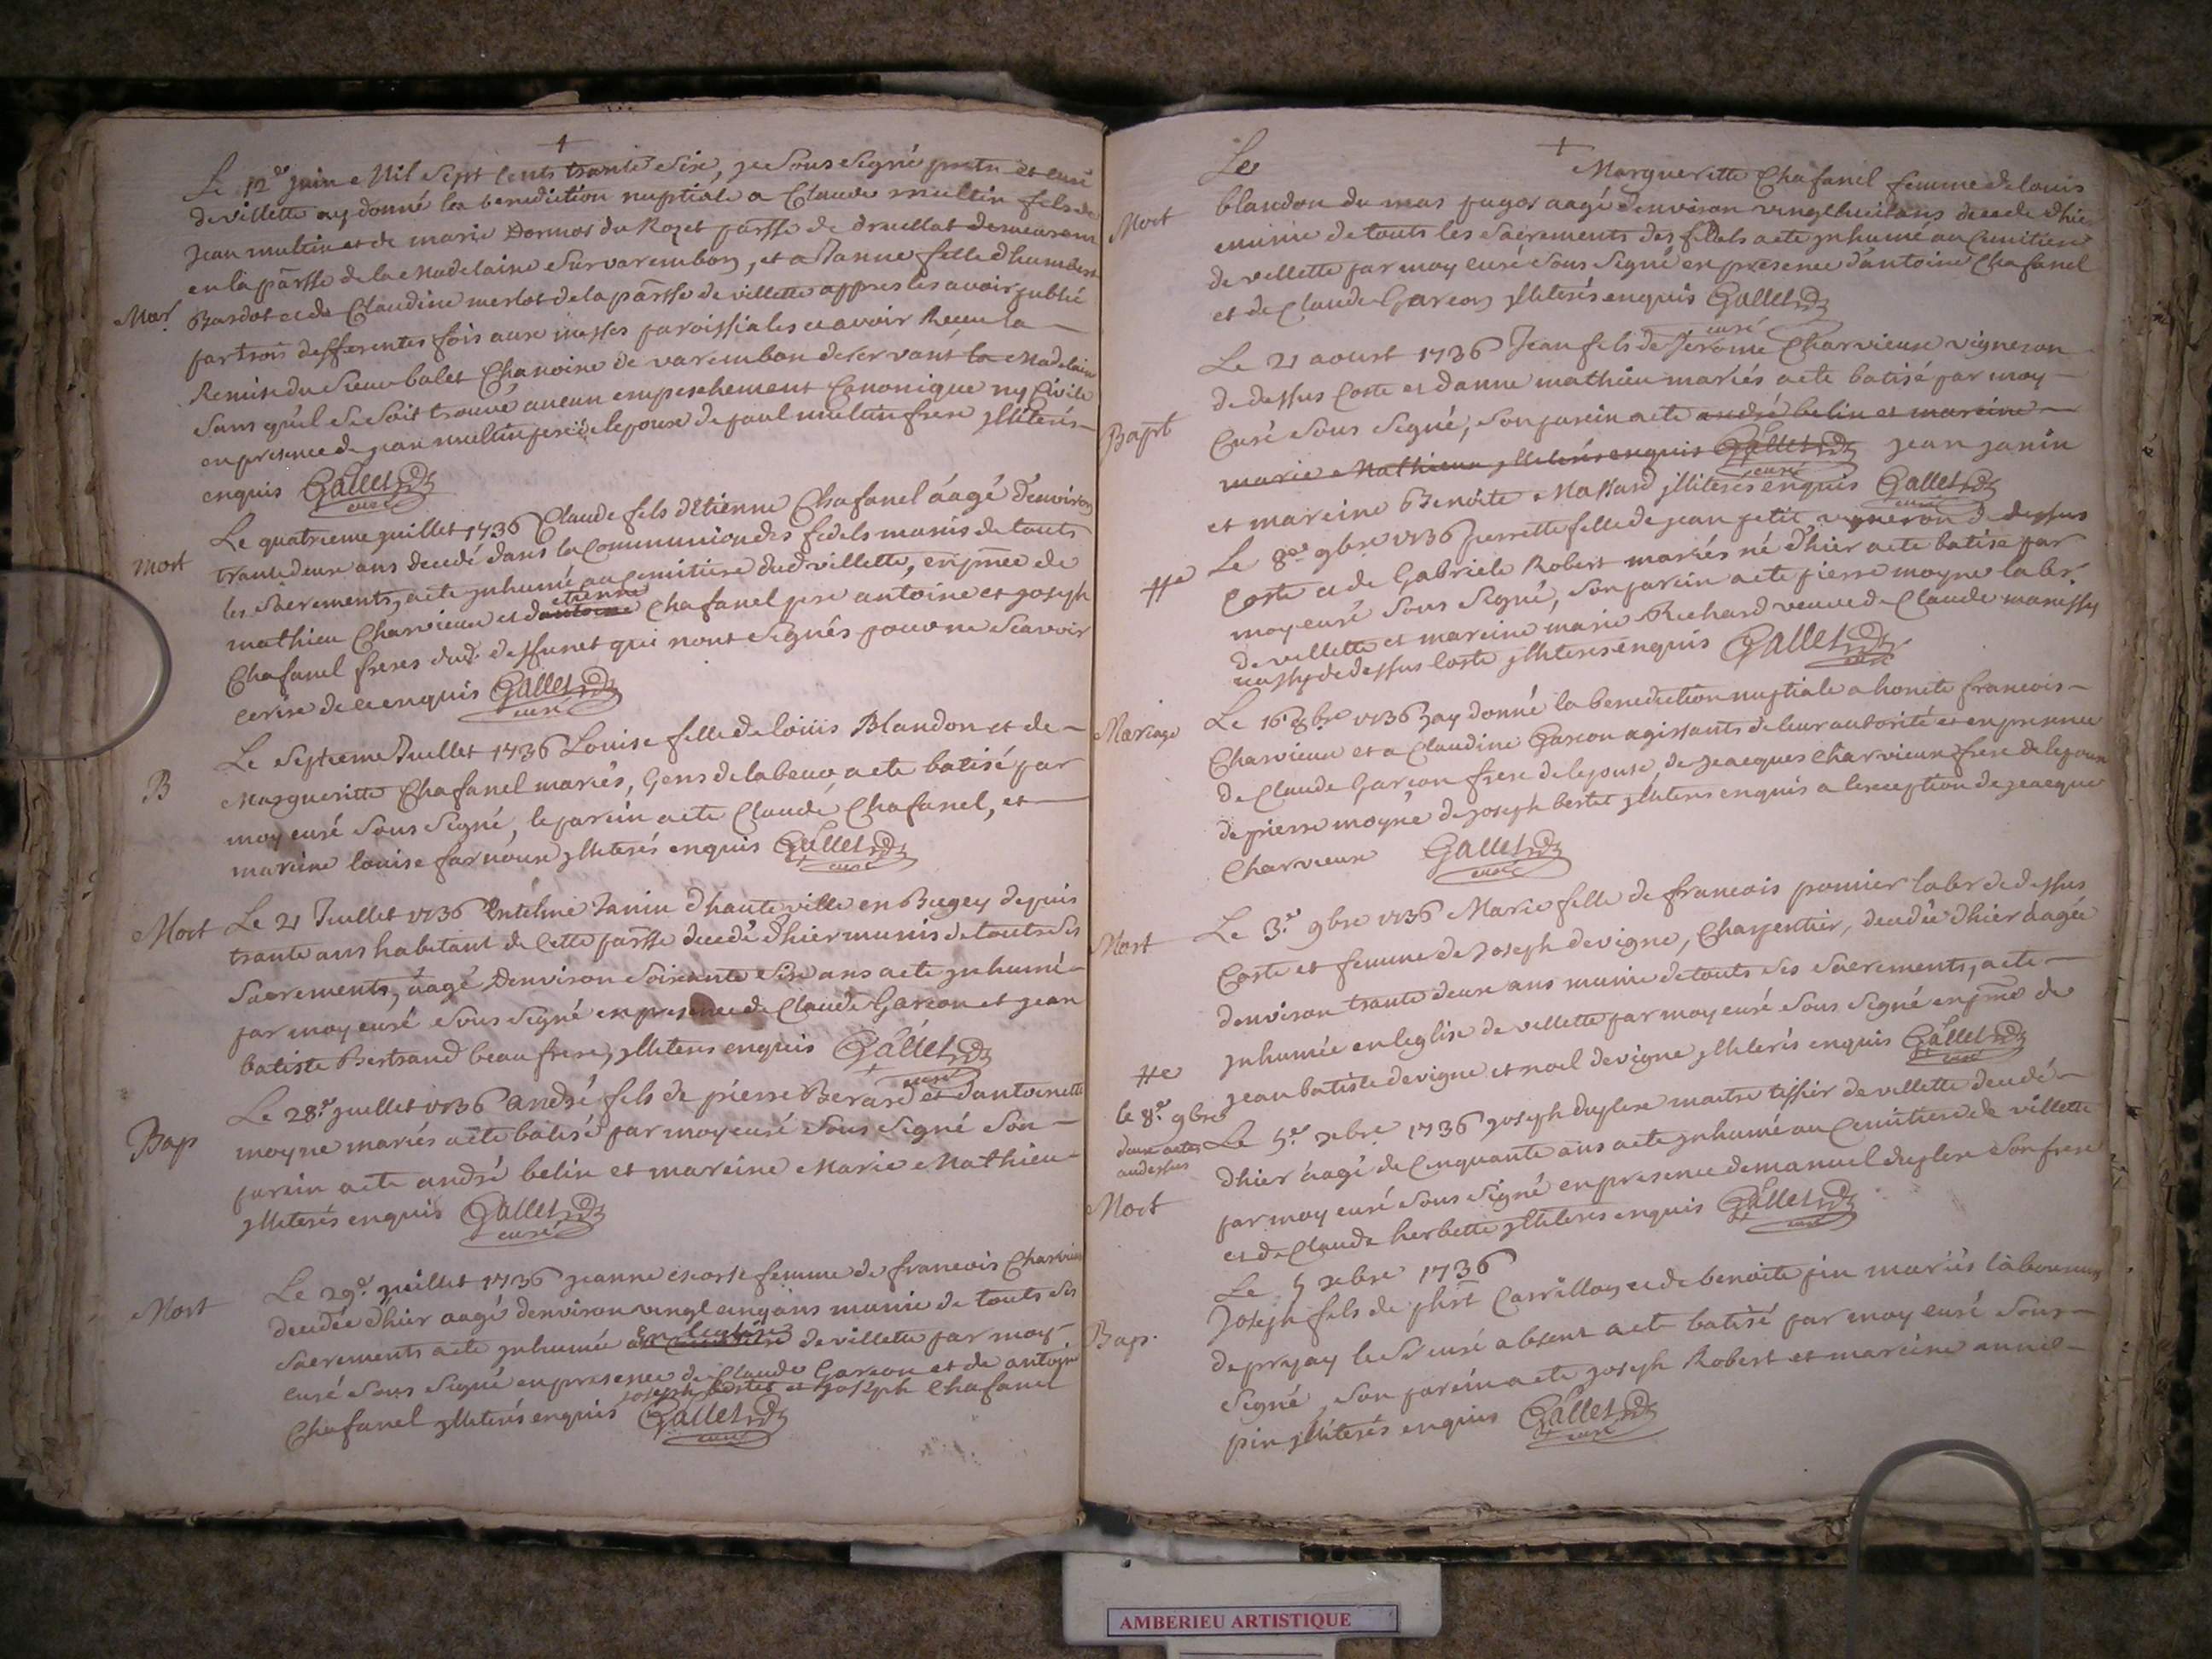 Le 12e juin Mil Sept Cents trante Six, je Sous Signé pretre et curé
de villette ay donné la benediction nuptiale a Claude multin fils de
Jean multin et de marie Dormos du Rozet parsse de druillat demeurant
en la parsse de la Madelaine Sur varembon, et a Janne fille d'humbert
Mar. Bardot et de Claudine merlot de la parsse de villette appres les avoir publié
par trois defferentes fois aux messes paroissiales et avoir Receu la
Remise du Sieur bolet Chanoine de varembon deservant la Madelaine
Sans qu'il Se Soit trouvé aucun empeschement Canonique ny Civile
en presence de jean multin pere de lepoux de paul multin frere jlliterés
enquis Gallet
curé
Mort Le quatrieme juillet 1736 Claude fils d'Etienne Chafanel áagé d'environ
trante deux ans decedé dans la Communion des fidels munis de touts
les Sacrements, a eté jnhumé au Cemitiere dud villette, en pnce de
etienne
mathieu Charvieux et d'antoine Chafanel pere antoine et joseph
Chafanel freres dud. deffunct qui nont Signés pour ne Scavoir
ecrire de ce enquis Gallet
curé
B Le Septieme Juillet 1736 Louise fille de loüis Blandon et de
Margueritte Chafanel mariés, Gens de labeur a eté batisé par
moy curé Sous Signé, le parein a eté Claude Chafanel, et
mareine louise farnoux jlliterés enquis Gallet
curé
Mort Le 21 Juillet 1736 Entelme Janin d'haute ville en Bugey depuis
trante ans habitant de Cette parsse decedé d'hier munis de touts Ses
Sacrements, áagé Denviron Soixante Six ans a eté jnhumé
par moy curé Sous Signé en presence de Claude Garcon et jean
batiste Bertrand beaufrere, jlliteres enquis Gallet
curé
Bap Le 28e juillet 1736 André fils de pierre Berard et d'antoinette
moyne mariés a eté batisé par moy curé Sous Signé Son
parein a eté andré belin et mareine Marie Mathieu
jlliterés enquis Gallet
curé
Mort Le 29e juillet 1736 jeanne femme de francois Charvieux
decedée d'hier aagé denviron vingt cinq ans munie de touts Ses
en leglise
Sacrements a eté jnhumé au Cemitiere de villette par moy
curé Sous Signé en presence de Claude Garcon et de antoine
joseph bertet et joseph Chafanel
Chafanel jlliterés enquis Gallet
curé
Le
Margueritte Chafanel femme de louis
Mort blandon du mas aagé d'environ vingt huit ans decede d'hier
munie de touts les Sacrements des fidels a eté jnhumé au Cemitiere
de villette par moy curé Sous Signé en presence d'antoine Chafanel
et de Claude Garcon jlliterés enquis Gallet
curé
Le 21 aoust 1736 Jean fils de Jérome Charvieux vigneron
de dessus Coste et d'anne mathieu mariés a eté batisé par moy
Bapt Curé Sous Signé, Son parein a eté andré belin et mareine
marie Mathieu jlliterés enquis Gallet jean janin
curé
et mareine Benoite Massard jlliterés enquis Gallet
curé
Le 8e 9bre 1736 pierrette fille de jean petit, vigneron de dessus
Coste et de Gabriele Robert mariés né d'hier a eté batisé par
moy curé Sous Signé, Son parein a eté pierre moyne labr.
de villette et mareine marie Richard veuve de Claude
de dessus Coste jlliterés enquis Gallet
curé
Mariage Le 16 8bre 1736 jay donné la benediction nuptiale a honete francois
Charvieux et a Claudine Garcon agissants de leur autorité et en presence
de Claude Garcon frere de lepouse, de jeacques Charvieux frere de lepoux
de pierre moyne de joseph bertet jlliteres enquis a lexception de jeacque
Charvieux Gallet
curé
Mort Le 3e 9bre 1736 Marie fille de francois pomier labr de dessus
Coste et femme de Joseph devigne, Charpentier, decedée d'hier áagée
denviron trante deux ans munie de touts Ses Sacrements, a eté
jnhumée en leglise de villette par moy curé Sous Signé en pnce de
jean batiste devigne et noel devigne jlliterés enquis Gallet
curé
le 8e 9bre
deux actes
audessus
Mort Le 5e xbre 1736 joseph duplex maitre tissier de villette decedé
d'hier áagé de Cinquante ans a eté jnhumé au Cemitiere de villette
par moy curé Sous Signé en presence demanuel duplex Son frere
et de Claude herbette jlliterés enquis Gallet
curé
Le 5 xbre 1736
Bap. Joseph fils de phit Carrillon et de benoite pin mariés laboureurs
de priay le Sr curé absent a eté batisé par moy curé Sous
Signé, Son parein a eté joseph Robert et mareine anne
pin jlliterés enquis Gallet
curé
AMBERIEU ARTISTIQUE